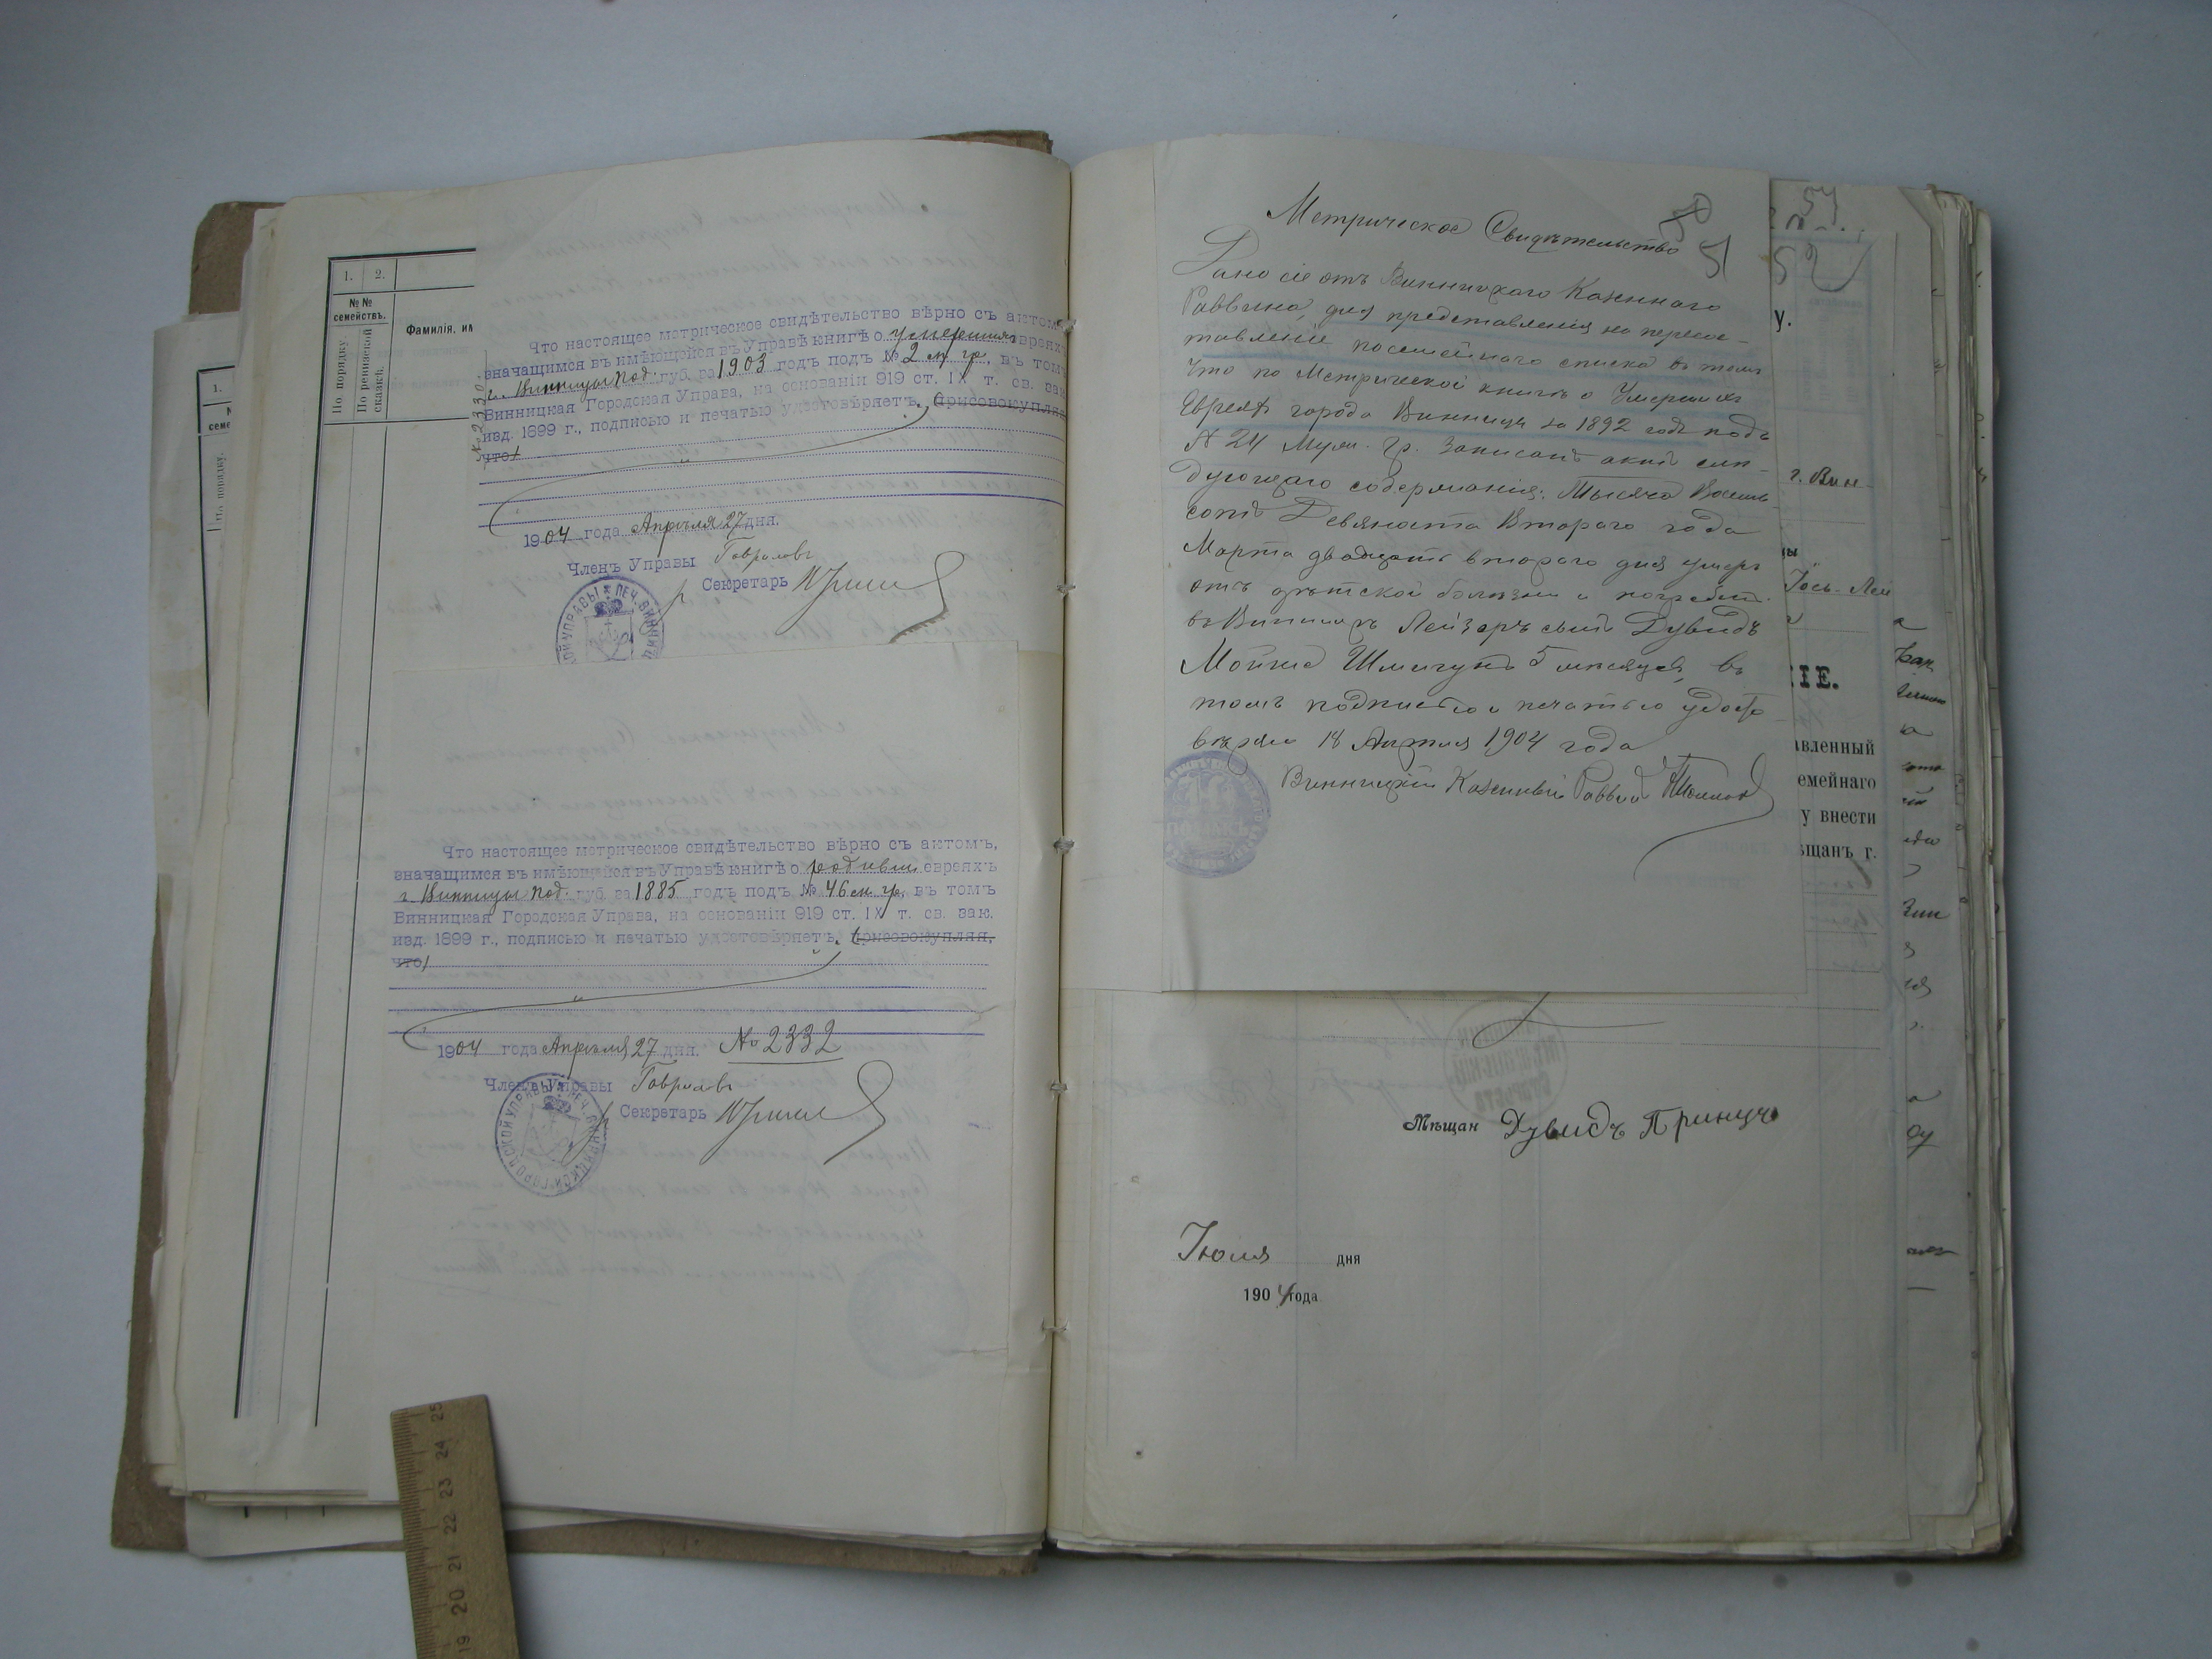 1. 2.
№№ семействъ.
По порядку.
По ревизской сказкѣ.
Фамилія, им
1.
По порядку.
№ 2330.
Что настоящее метрическое свидѣтельство вѣрно съ актом
значащимся въ имѣющейся въ Управѣ книгѣ о умерших евреяхъ
г. Винницы Под. губ. за 1903 годъ подъ № 2 м. гр., въ томъ
Винницкая Городская Управа, на основаніи 919 ст. IX т. св. зак
изд. 1899 г., подписью и печатью удостовѣряетъ, присовокупля
что
1904 года Апрѣля 27 дня.
Членъ Управы Гавриловъ
Секретарь
Что настоящее метрическое свидѣтельство вѣрно съ актомъ,
значащимся въ имѣющейся въ Управѣ книгѣ о родивш евреяхъ
г. Винницы Под. губ. за 1885 годъ подъ № 46 м. гр., въ томъ
Винницкая Городская Управа, на основаніи 919 ст. IX т. св. зак.
изд. 1899 г., подписью и печатью удостовѣряетъ, присовокупляя,
что
1904 года Апрѣля 27 дня. № 2332
Членъ Управы Гавриловъ
Секретарь
50
51
Метрическое Свидѣтельство
Дано сіе отъ Винницкаго Казеннаго
Раввина, для представленія на пересос-
тавленіе посемейнаго списка въ томъ
Что по Метрической книгѣ о Умершихъ
Евреяхъ города Винницы за 1892 годъ подъ
№ 24 Муж. Гр. Записанъ актъ слѣ-
дующаго содержанія: Тысяча Восемь
сотъ Девяноста Втораго года
Марта двадцать втораго дня умеръ
отъ дѣтской болѣзни и погребенъ
въ Винницѣ Лейзеръ сынъ Дувидъ
Шмигунъ 5 мѣсяцевъ, въ
томъ подписью и печатью удосто
вѣряю 18 Апрѣля 1904 года
Винницкій Казенный Раввинъ
54
52
у.
г. Вин-
Іось-Лей
ІЕ.
авленный
емейнаго
у внести
ѣщанъ г.
Мѣщан Дувидъ Принцъ
Іюля дня
1904 года
19 20 21 22 23 24 25